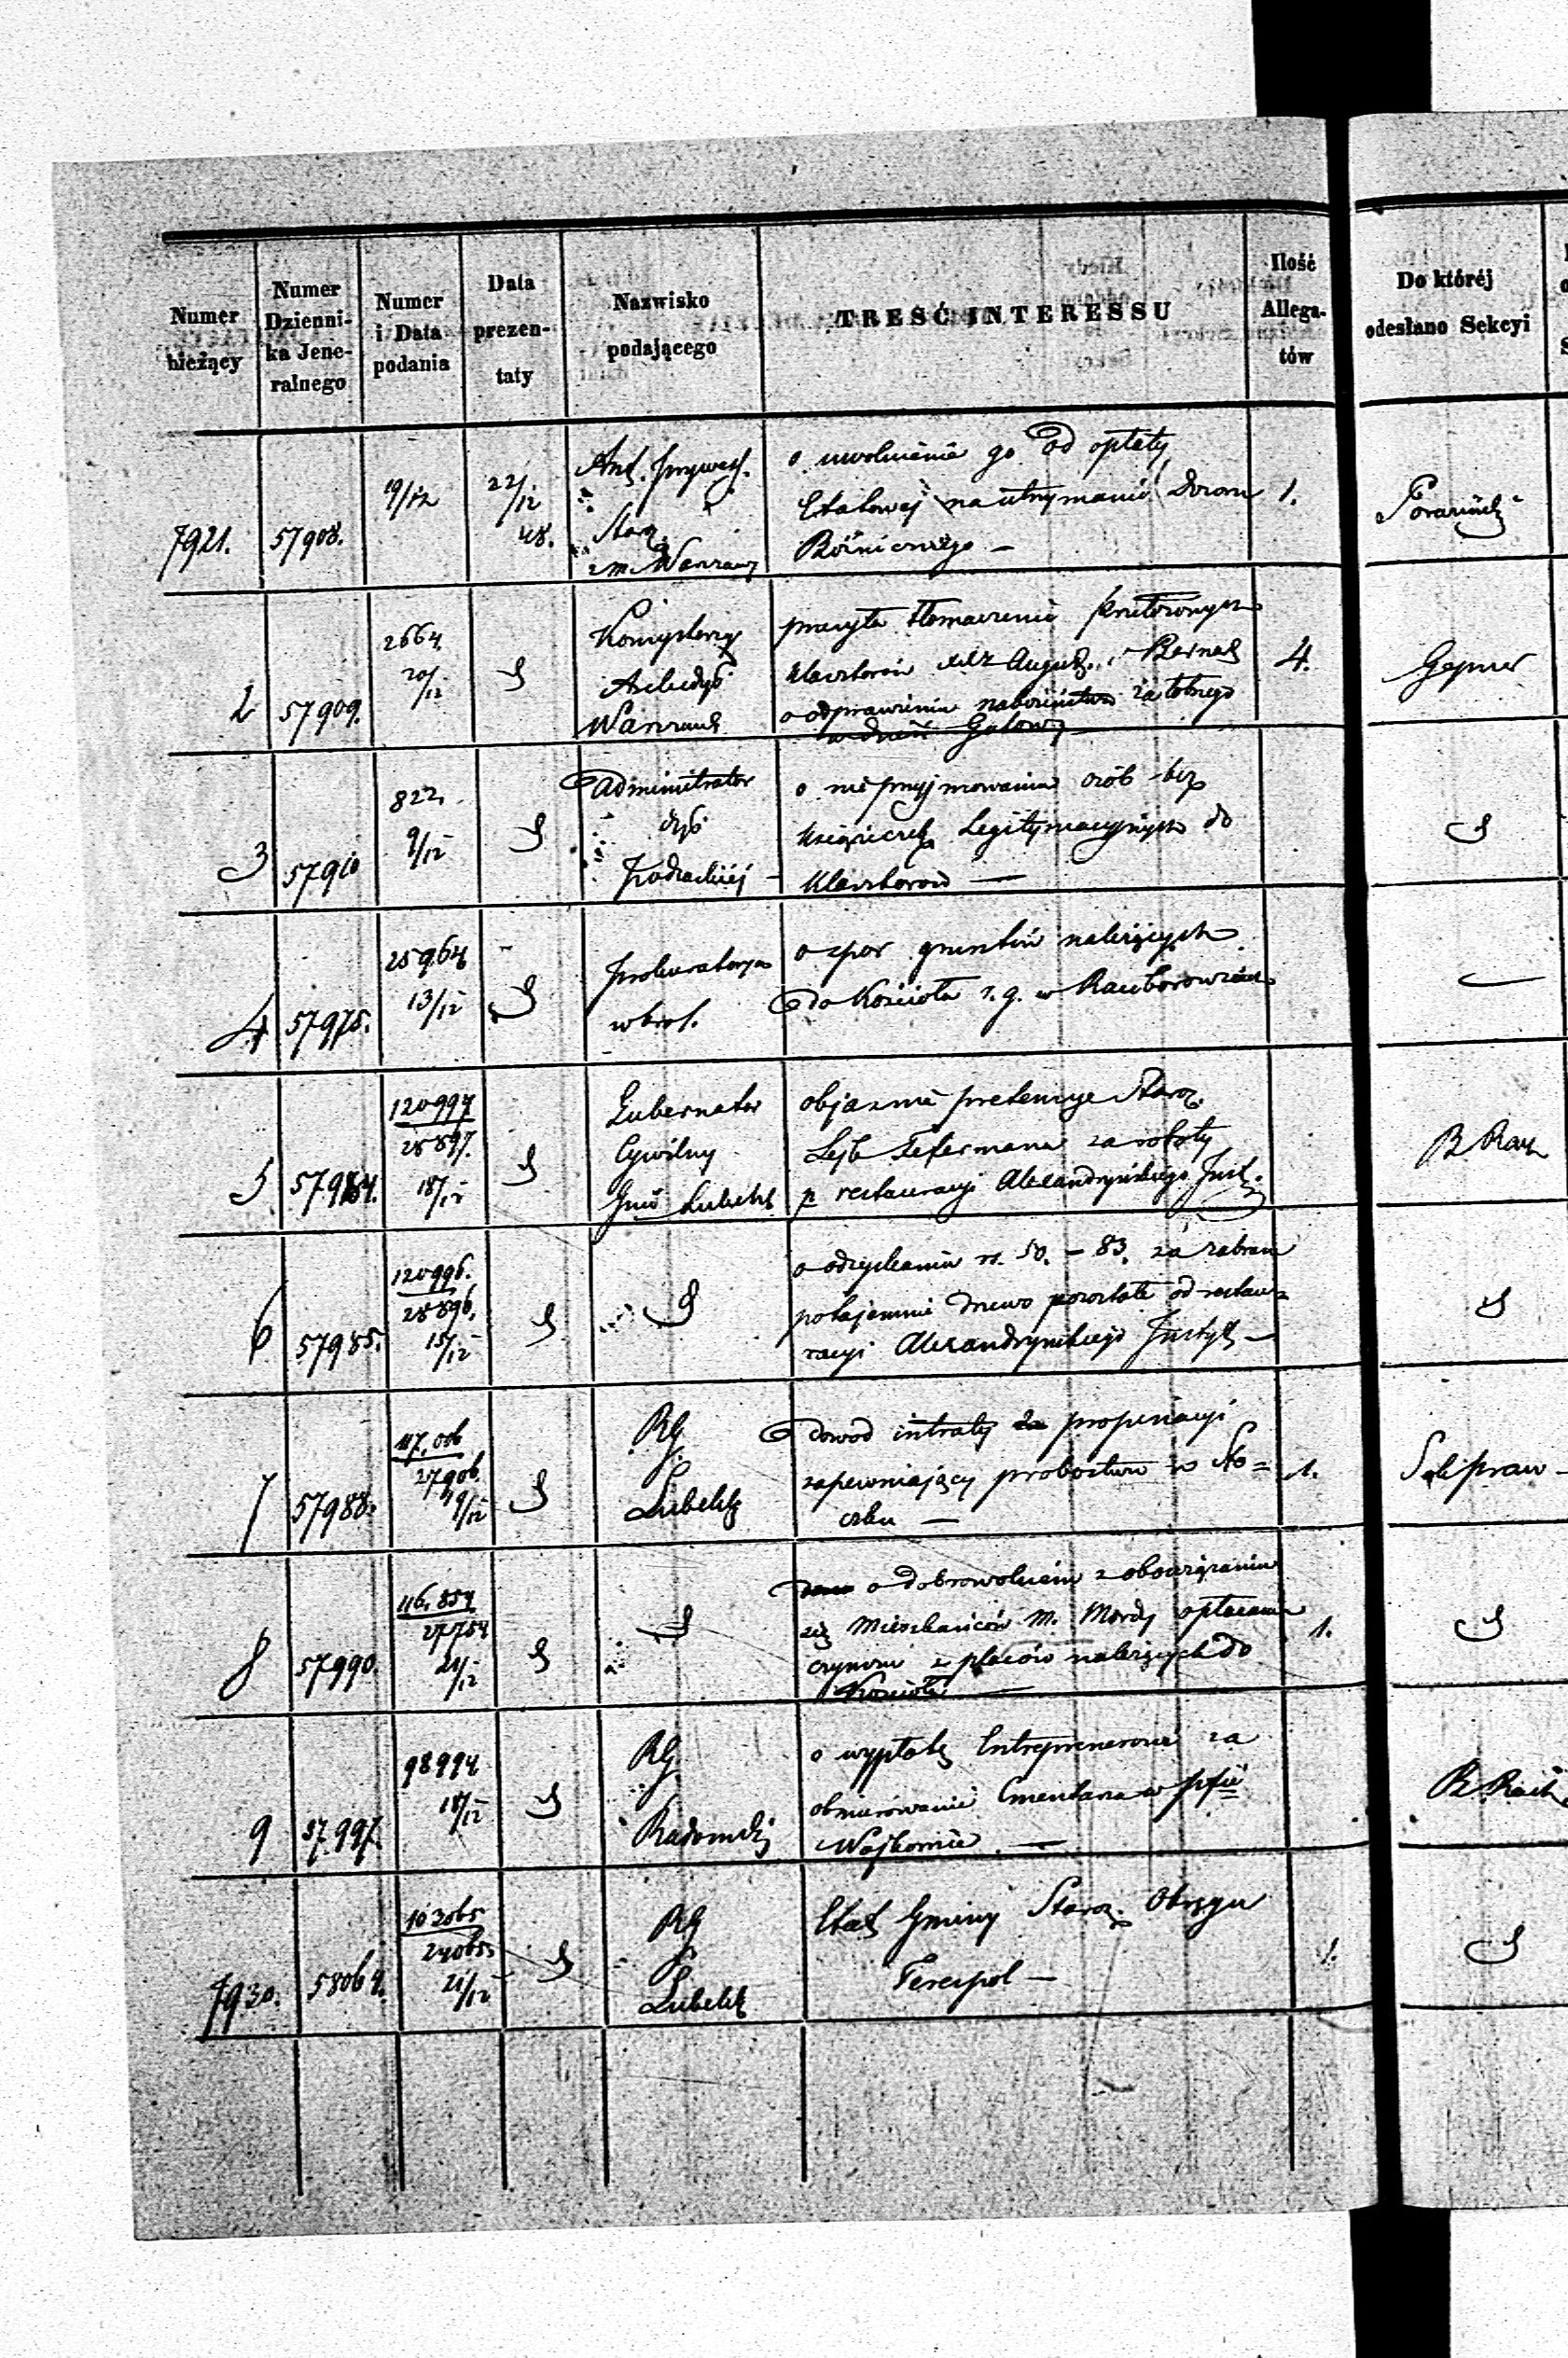 Numer bieżący
Numer Dzienni- ka Jene- ralnego
Numer i Data podania
Data prezen- taty
Nazwisko podającego
TREŚĆ INTERESSU
Ilość Allega- tów
Do któréj odesłano Sekcyi
7921.
57908.
19/12
22/12
48.
Ant.
Star.
z m. Warszawy
o uwolnienie go od opłaty
Etatowej na utrzymanie Dozoru
Bóżniczego —
1.
2
57909.
2664.
20/12
Konsystorz
Archidyś
Warszaws
przesyła tłomaczenia Przełożonych
Klasztorów August. i Bernad
o odprawieniu nabożeństwa żałobnego
w dzień Galowy
4.
Gepner
3
57910
822.
9/12
Administrator
dyś
Podlaskiéj
o nieprzyjmowaniu osób bez
książeczek Legitymacyjnych do
Klasztorów —
4
57975.
25964
13/12
Prokuratorya
w Król.
o spor gruntów należących
do Kościoła r. g. w
5
57984.
120997
28897.
18/12
Gubernator
Cywilny
Gub Lubelsk
objaśnia pretensye Staroz.
Lejb Fefermana za roboty
p restauracyi Alexandryńskiego Inst.
6
57985.
120996.
28896.
15/12
o odzyskaniu rs. 50. – 83. za zabrane
potajemnie drzewo pozostałe od restau-
racyi Alexandryńskiego Instyt —
7
57988.
117.006
27906.
19/12
RG.
Lubelsk
dowód intraty propinacyi
zapewniający probostwu w Sto=
czku —
1.
8
57990.
116.854
27754
21/12
o dobrowolnem zobowiązaniu
się Mieszkańców m. Mordy opłacania
czynszu z placów należących do
Kościoła —
1.
9
57.997.
98994
18/12
RG.
Radomski
o wypłatę Entreprenerowi za
obmurowanie Cmentarza w
Wojkowie —
7930.
58064.
103065
24065
21/12
RG
Lubelsk
Etat Gminy Staroz. Okręgu
Terespol —
1.